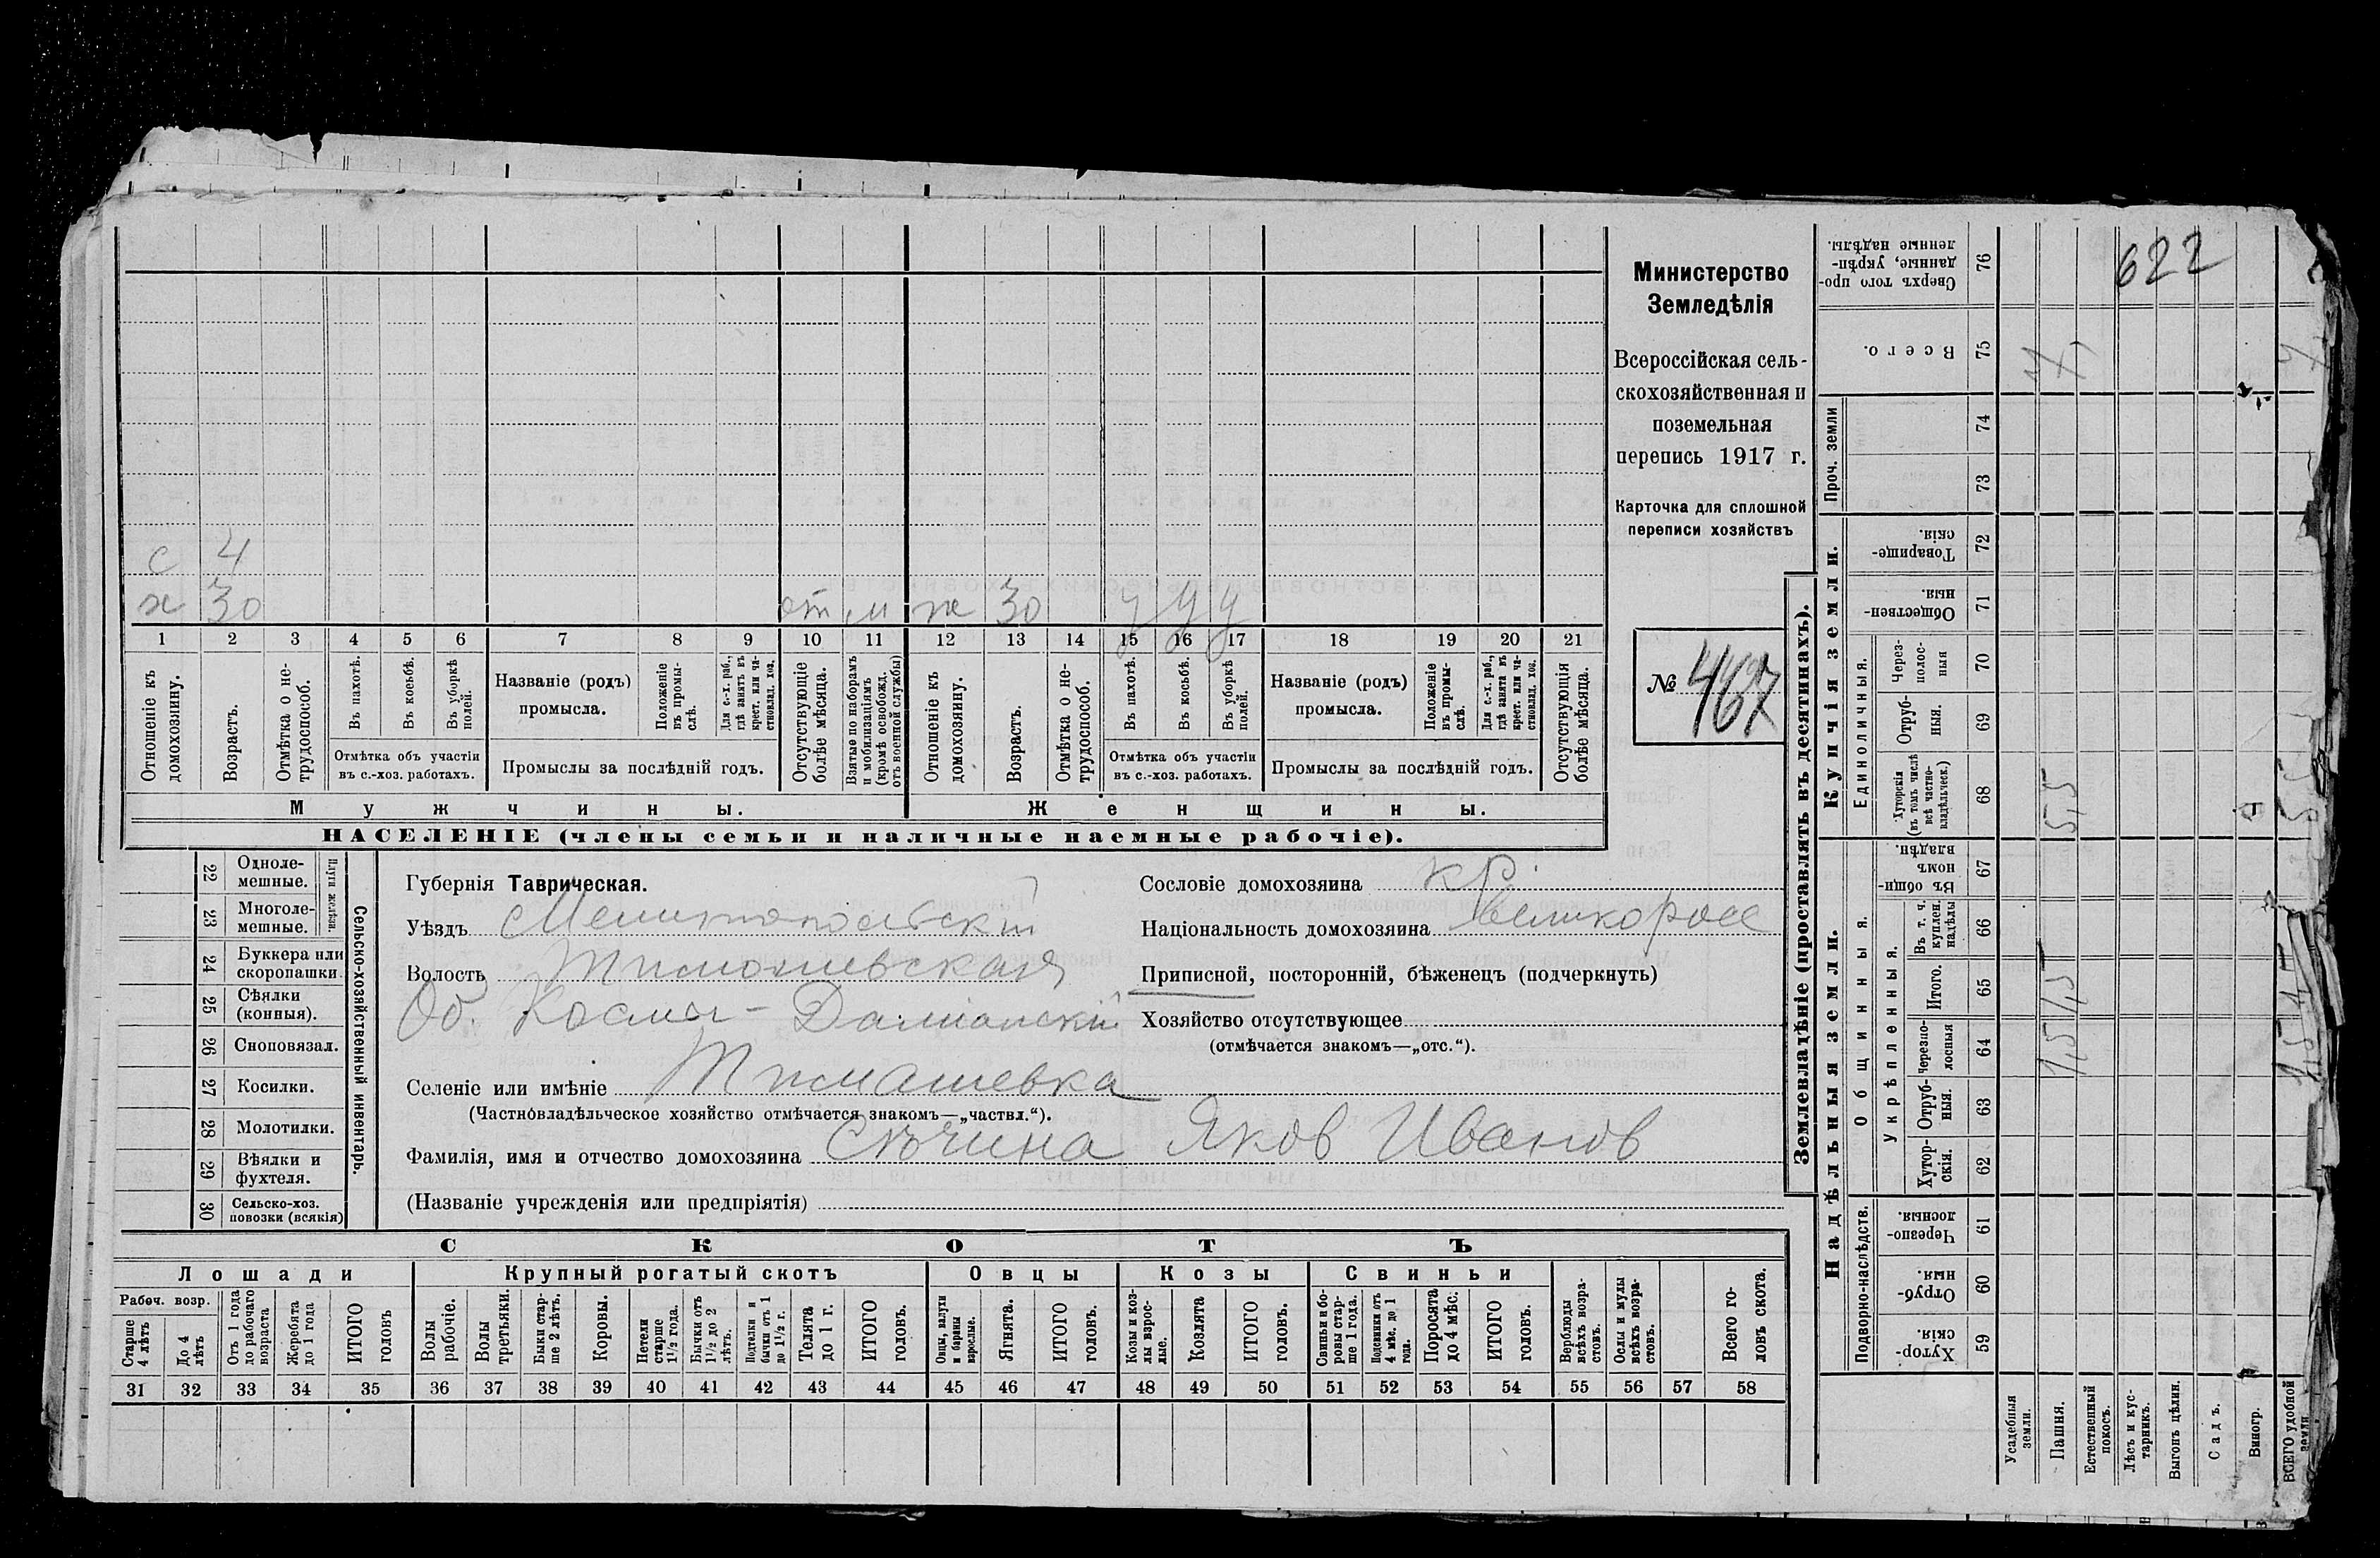 с 4
х 30 от м ж 30 у у у
1 2 3 4 5 6 7 8 9 10 11 12 13 14 15 16 17 18 19 20 21
Отношеніе къ домохозяину.
Возрастъ.
Отмѣтка о не-трудоспособ.
Въ пахотѣ.
Въ косьбѣ.
Въ уборкѣ полей.
Отмѣтка объ участіи
въ с.-хоз. работахъ.
Названіе (родъ)
промысла.
Положеніе въ промы-слѣ.
Для с.-х. раб., гдѣ занятъ въ крест. или ча-стновлад. хоз.
Промыслы за послѣдній годъ.
Отсутствующіе болѣе мѣсяца.
Взятые по наборамъ и мобилизаціямъ (кромѣ освобожд. отъ военной службы)
Отношеніе къ домохозяину.
Возрастъ.
Отмѣтка о не-трудоспособ.
Въ пахотѣ.
Въ косьбѣ.
Въ уборкѣ полей.
Отмѣтка объ участіи
въ с.-хоз. работахъ.
Названіе (родъ)
промысла.
Положеніе въ промы-слѣ.
Для с.-х. раб., гдѣ занята въ крест. или ча-стновлад. хоз.
Промыслы за послѣдній годъ.
Отсутствующія болѣе мѣсяца.
Мужчины. Женщины.
НАСЕЛЕНІЕ (члены семьи и наличные наемные рабочіе).
Министерство
Земледѣлія
Всероссійская сель-
скохозяйственная и
поземельная
перепись 1917 г.
Карточка для сплошной
переписи хозяйствъ
№ 467
22 Одноле-мешные.
23 Многоле-мешные.
Плуги желѣзн.
24 Буккера или скоропашки.
25 Сѣялки (конныя).
26 Сноповязал.
27 Косилки.
28 Молотилки.
29 Вѣялки и фухтеля.
30 Сельско-хоз. повозки (всякія)
Сельско-хозяйственный инвентарь.
Губернія Таврическая.
Уѣздъ Мелитопольскій
Волость Тимошевская
Об. Косма-Даміанскій
Селеніе или имѣніе Тимашевка
(Частновладѣльческое хозяйство отмѣчается знакомъ—„частвл.“).
Фамилія, имя и отчество домохозяина Сѣчина Яков Иванов
(Названіе учрежденія или предпріятія)
Сословіе домохозяина кр.
Національность домохозяина великоросс
Приписной, посторонній, бѣженецъ (подчеркнуть)
Хозяйство отсутствующее
(отмѣчается знакомъ—„отс.“).
СКОТЪ
Лошади Крупный рогатый скотъ Овцы Козы Свиньи
Рабоч. возр.
Старше 4 лѣтъ
До 4 лѣтъ
Отъ 1 года до рабочаго возраста
Жеребята до 1 года
ИТОГО головъ
Волы рабочіе.
Волы третьяки.
Быки стар-ше 2 лѣтъ.
Коровы.
Нетели старше 1½ года.
Бычки отъ 1½ до 2 лѣтъ.
Подтелки и бычки отъ 1 до 1½ г.
Телята до 1 г.
ИТОГО головъ.
Овцы, валухи и бараны взрослые.
Ягнята.
ИТОГО головъ.
Козы и коз-лы взрос-лые.
Козлята
ИТОГО головъ.
Свиньи и бо-ровы стар-ше 1 года.
Подсвинки отъ 4 мѣс. до 1 года.
Поросята до 4 мѣс.
ИТОГО головъ.
Верблюды всѣхъ возра-стовъ.
Ослы и мулы всѣхъ возра-стовъ.
Всего го-ловъ скота.
31 32 33 34 35 36 37 38 39 40 41 42 43 44 45 46 47 48 49 50 51 52 53 54 55 56 57 58
Землевладѣніе (проставлять въ десятинахъ).
Сверхъ того про-данные, укрѣп-ленные надѣлы. 76 622
Всего. 75 7,
Проч. земли 74
73
Купчія земли.
Товарище-скія. 72
Обществен-ныя. 71
Единоличныя.
Через-полос-ныя 70
Отруб-ныя. 69
Хуторскія (въ томъ числѣ всѣ частно-владѣльческ.) 68 5,5
Надѣльныя земли.
Общинныя.
Въ общин-номъ владѣн. 67
Укрѣпленныя.
Въ т. ч. куплен. надѣлы 66
Итого. 65 1,5
Черезпо-лосныя 64 1,5
Отруб-ныя. 63
Хутор-скія. 62
Подворно-наслѣдств.
Черезпо-лосныя. 61
Отруб-ныя. 60
Хутор-скія. 59
Усадебныя земли.
Пашня.
Естественный покосъ.
Лѣсъ и кус-тарникъ.
Выгонъ цѣлин.
Садъ.
Виногр.
ВСЕГО удобной земли